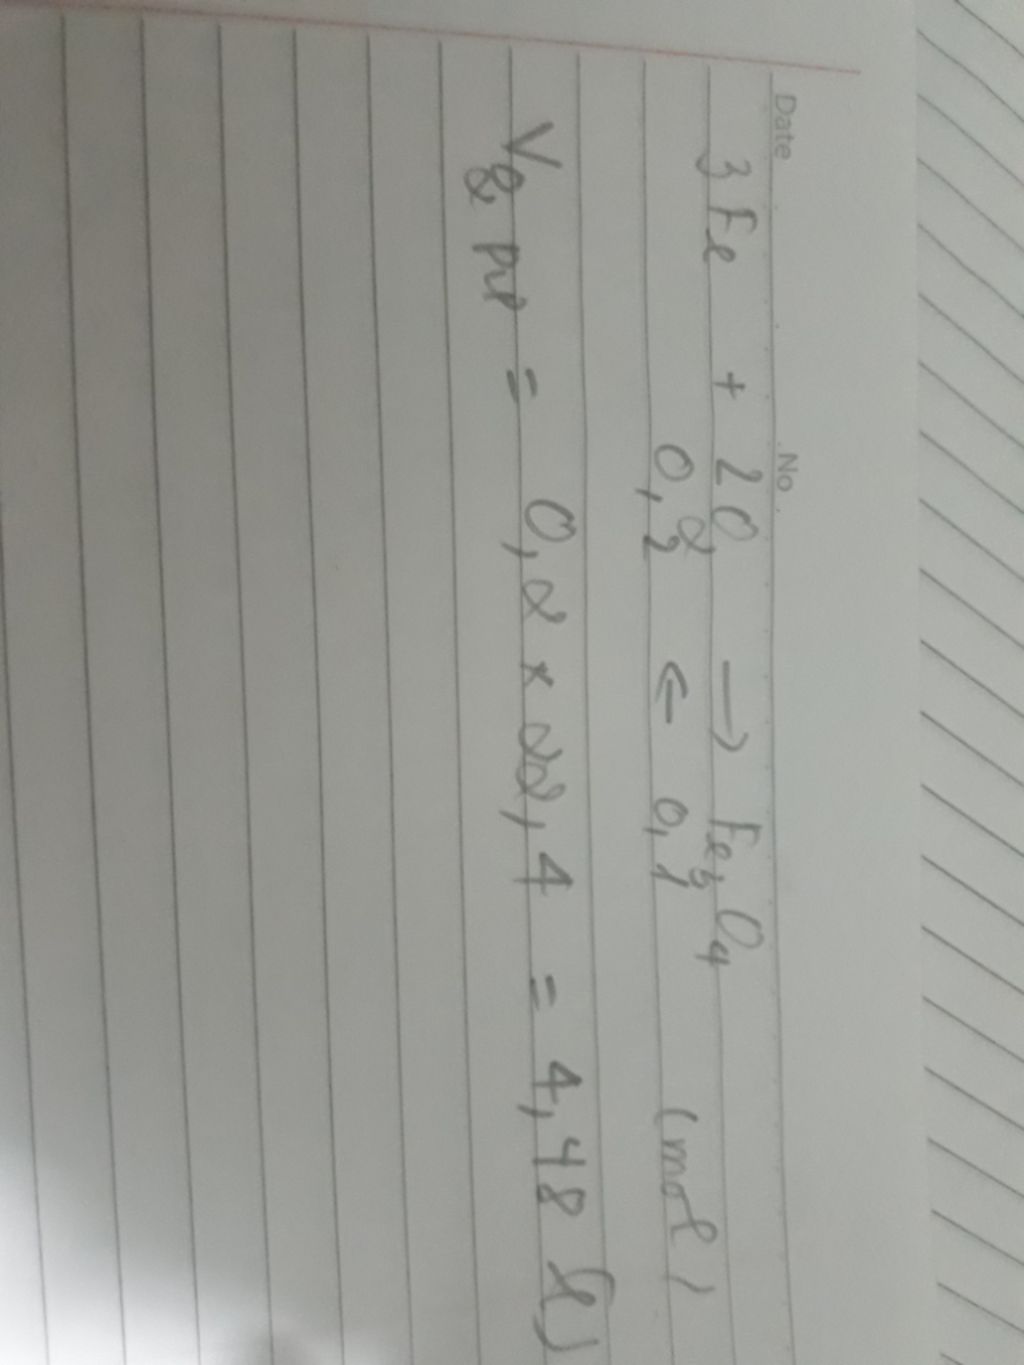 Date No
3Fe + 2O2 → Fe3O4
0,2 ← 0,1 (mol)
= 0,2 × 22,4 = 4,48 l)